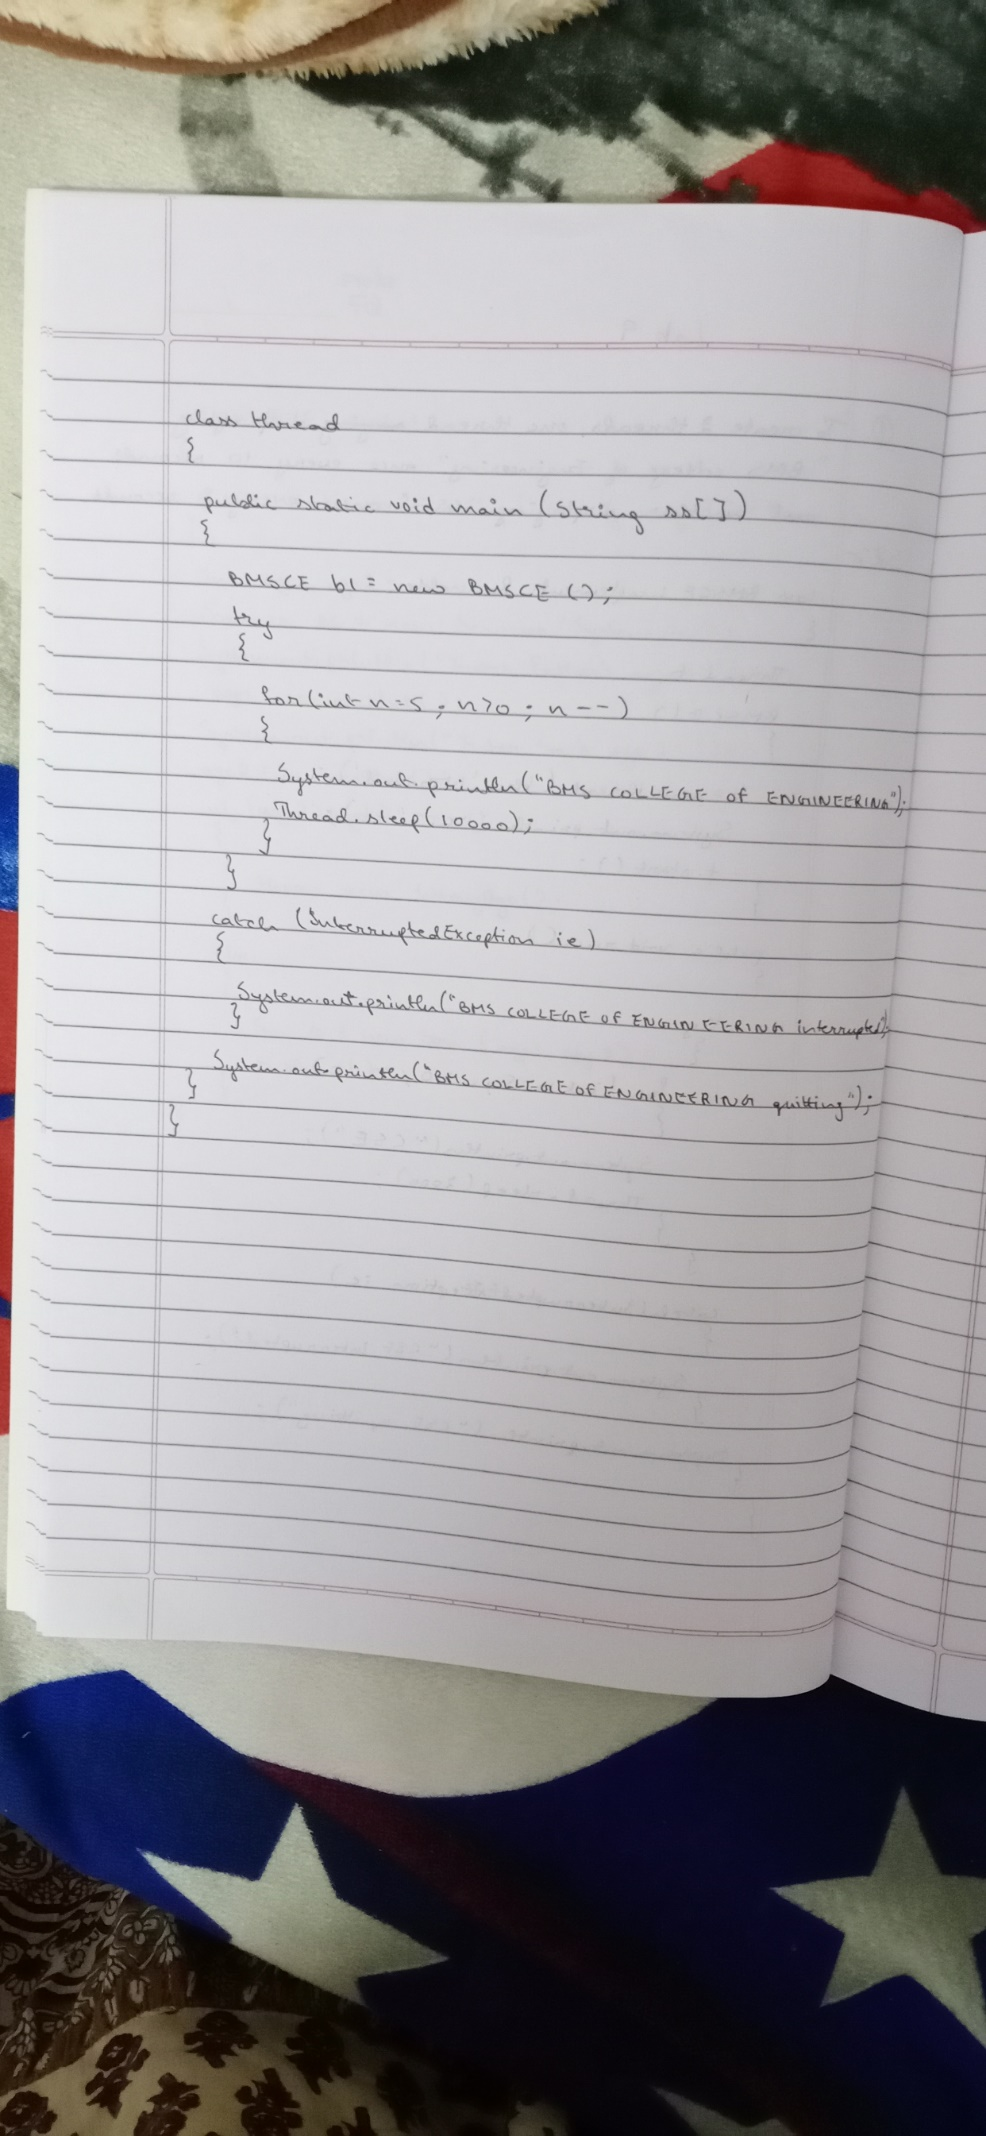 class thread
{
public static void main (String ss[])
{
BMSCE b1 = new BMSCE ();
try
{
for(int n=5; n>0; n--)
{
System.out.println("BMS COLLEGE of ENGINEERING");
Thread.sleep(10000);
}
}
catch (InterruptedException ie)
{
System.out.println("BMS COLLEGE OF ENGINEERING interrupted");
}
System.out.println("BMS COLLEGE OF ENGINEERING quitting");
}
}